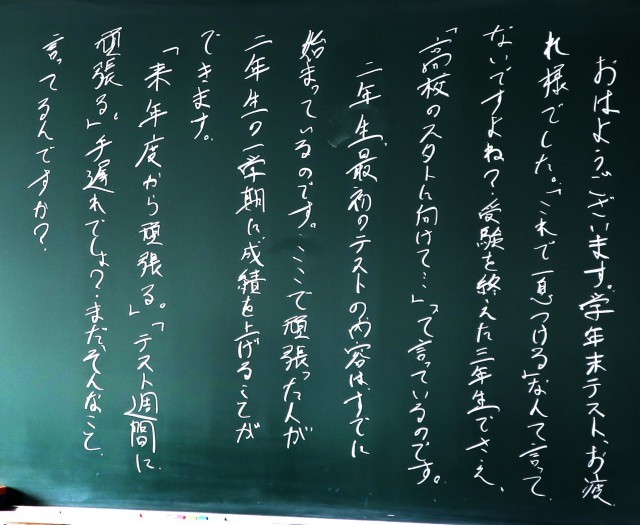 おはようございます。学年末テスト、お疲
れ様でした。「これで一息つける」なんて言って
ないですよね？受験を終えた三年生でさえ、
「高校のスタートに向けて…」って言っているのです。
二年生、最初のテストの内容は、すでに
始まっているのです。ここで頑張った人が
二年生の一学期に成績を上げることが
できます。
「来年度から頑張る。」「テスト週間に
頑張る。」手遅れでしょ？まだ、そんなこと、
言ってるんですか？